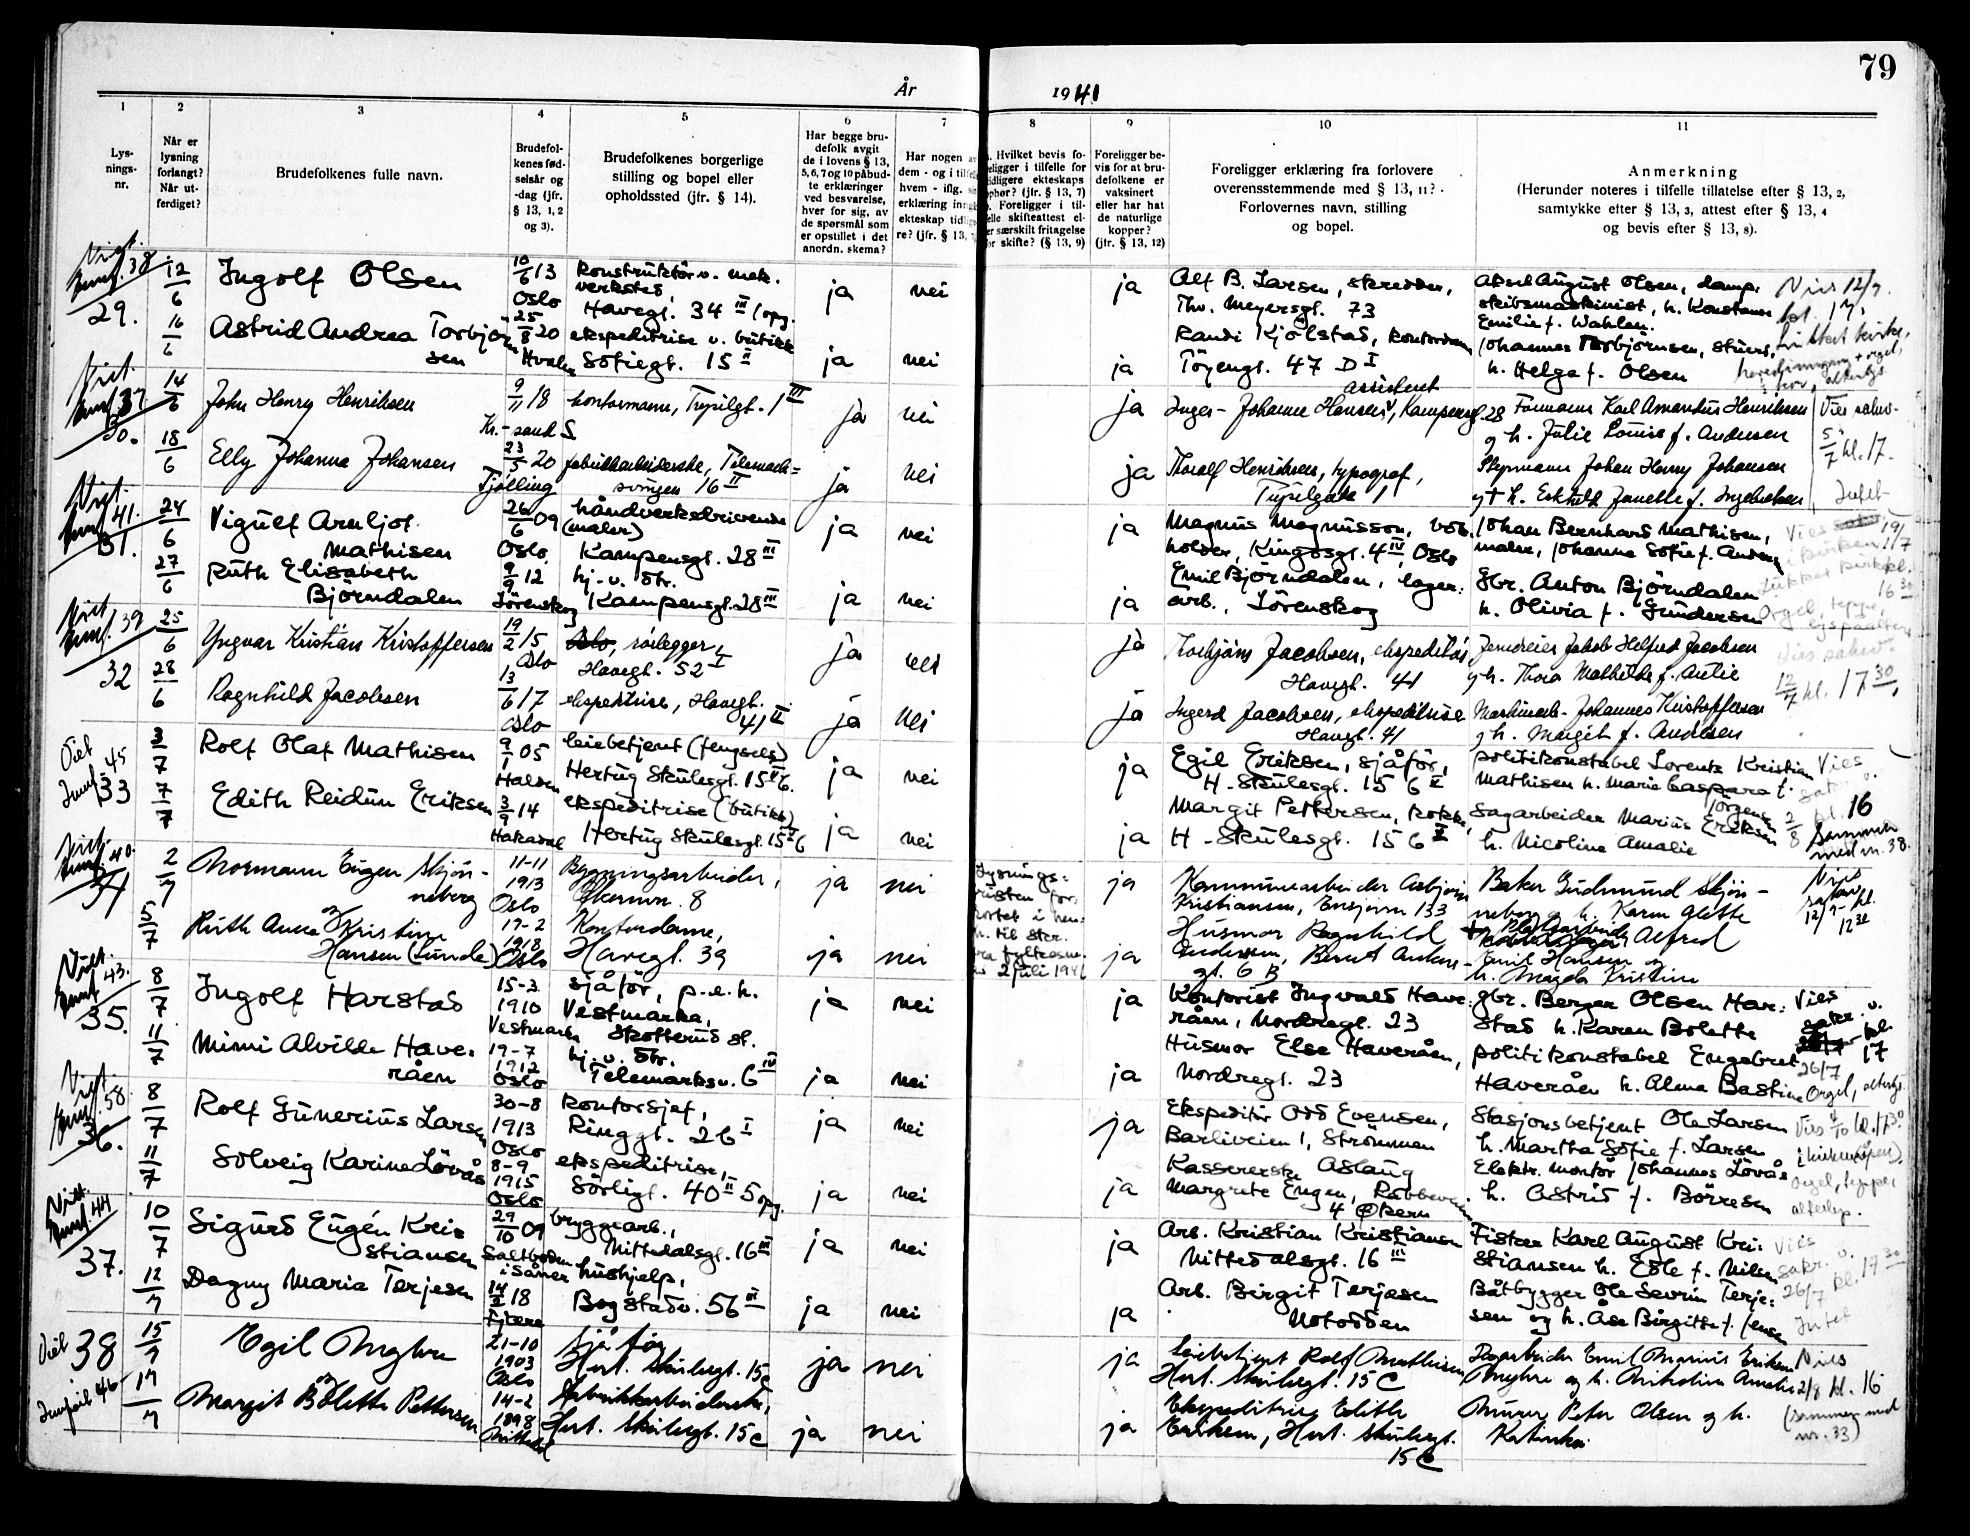 79
År 1941
1 2 3 4 5 6 7 8 9 10 11
Lys-
nings-
nr.
Når er
lysning
forlangt?
Når ut-
ferdiget?
Brudefolkenes fulle navn.
Brudefol-
kenes fød-
selsår og
-dag (jfr.
§ 13, 1, 2
og 3).
Brudefolkenes borgerlige
stilling og bopel eller
opholdssted (jfr. § 14).
Har begge bru-
defolk avgit
de i lovens § 13,
5, 6, 7 og 10 påbud-
te erklæringer
ved besvarelse,
hver for sig, av
de spørsmål som
er opstillet i det
anordn. skema?
Har nogen
dem - og i
hvem - iflg.
erklæring
ekteskap
re? (jfr. § 13,
Hvilket bevis fo-
religger i tilfelle for
tidligere ekteskaps
ophør? (jfr. § 13, 7)
Foreligger i til-
felle skifteattest el-
ler særskilt fritagelse
for skifte? (§ 13, 9)
Foreligger be-
vis for at bru-
defolkene er
vaksinert
eller har hat
de naturlige
kopper?
(jfr. § 13, 12)
Foreligger erklæring fra forlovere
overensstemmende med § 13, 11?
Forlovernes navn, stilling
og bopel.
Anmerkning
(Herunder noteres i tilfelle tillatelse efter § 13, 2,
samtykke efter § 13, 3, attest efter § 13, 4
og bevis efter § 13, 8).
Viet. 38
29.
12/6
16/6
Ingolf Olsen
10/6 13
Oslo
konstruktör v. mek.
verksted,
Havegt. 34 III (opg.
ja nei ja
Alf B. Larsen, skredder,
Thv. Meyersgt. 73
Aksel August Olsen, damp-
skibsmaskinist, h. Konstance
Emilie f. Wahlen.
Vies 12/7
kl. 17,
Astrid Andrea Torbjörn
sen
25/8 20
Hvaler
ekspeditrise v. butikk
Sofiegt. 15 II
ja nei ja
Randi Kjölstad, kontordame
Töyengt. 47 D I
Johannes Torbjörnsen,
h. Helga f. Olsen
Viet. 37
30.
14/6
18/6
John Henry Henriksen
9/11 18
Kr.-sand S
kontormann, Trysilgt. 1 III
ja nei ja
assistent
Inger-Johanne Hansen, Kampengt. 28
Formann Karl Amandus Henriksen
og h. Julie Louise f. Andersen
Vies sakr.
5/7 kl. 17.
Elly Johanna Johansen
23/5 20
Tjölling
fabrikkarbeiderske, Telemark-
svingen 16 II
ja nei ja
Thoralf Henriksen, typograf,
Trysilgate 1
Johan Henry Johansen
f. Ingebretsen
Intet
Viet. 41.
31.
24/6
27/6
Viguelf Arnljot
Mathisen
26/6 09
Oslo
håndverksdrivende
(maler)
Kampensgt. 28 III
ja nei ja
Magnus Magnusson,
holder, Kingosgt. 4 IV, Oslo
Johan Bernhard Mathisen,
maler, Johanna Sofie f. Andersen
Ruth Elisabeth
Björndalen
9/9 12
Lörenskog
hj. v. str.
Kampensgt. 28 III
ja nei ja
Emil Björndalen, lager-
arb., Lörenskog
Gbr. Anton Björndalen
h. Olivia f. Gundersen
Orgel, teppe,
Viet. 39
32
25/6
28/6
Yngvar Kristian Kristoffersen
19/2 15
Oslo
rörlegger,
Havegt. 52 I
ja nei ja
Thorbjörn Jacobsen, ekspeditör
Havegt. 41
Jerndreier Jakob Helfred Jacobsen
og h. Thora Mathilde f. Aulie
Vies sakr.
12/7 kl. 17 30
Ragnhild Jacobsen
13/6 17
Oslo
ekspeditrise, Havegt.
41 II
ja nei ja
Ingerd Jacobsen, ekspeditrise
Havegt. 41
Maskinarb. Johannes Kristoffersen
og h. Margit f. Andersen
Viet 45
33
3/7
7/7
Rolf Olaf Mathisen
9/1 05
Halden
leiebetjent (fengsels)
Hertug Skulesgt. 15 6.
ja nei ja
Egil Eriksen, sjåför,
H. Skulesgt. 15 6 II
politikonstabel Lorents Kristian
Mathisen h. Marie Caspara f.
Jörgensen
Vies
2/8 kl. 16
Sammen
med nr. 38.
Edith Reidun Eriksen
3/9 14
Hakadal
ekspeditrise (butikk)
Hertug Skulesgt. 15 6
ja nei ja
Margit Pettersen, kokke,
H. Skulesgt. 15 6 II
Sagarbeider Marius Eriksen
h. Nicoline Amalie
Viet. 40.
34
2/7
5/7
Normann Eugen Skjön-
neberg
11-11
1913
Oslo
Bygningsarbeider,
Økernvn. 8
ja nei
Lysnings-
2 juli 1941
ja
Kommunearbeider Asbjörn
Kristiansen, Ensjövn 133
Baker Gudmund Skjön-
neberg og h. Karen Alette
Ruth Anna Kristine
Hansen (Lunde)
17-2
1918
Oslo
Kontordame,
Havegt. 39
ja nei ja
Husmor Ragnhild
Andersen, Bernt Ankers-
gt. 6 B
Alfred
Emil Hansen og
h. Magda Kristine
Viet. 43.
35.
8/7
11/7
Ingolf Harstad
15-3
1910
Vestmarka
sjåför, p.t.h.
Vestmarka,
Skotterud st.
ja nei ja
Kontorist Ingvald Have-
råen, Nordregt. 23
gbr. Berger Olsen Har-
stad h. Karen Bolette
Vies
sakr. v.
kl. 17
26/7
Mimi Alvilde Have-
råen
19-7
1912
Oslo
hj. v. str.
Telemarksv. 6 IV
ja nei ja
Husmor Else Haveråen,
Nordregt. 23
politikonstabel Engebret
Haveråen h. Alma Bastine
Orgel,
Viet. 58.
36.
8/7
11/7
Rolf Gunerius Larsen
30-8
1913
Oslo
kontorsjef,
Ringgt. 26 I
ja nei ja
Ekspeditör Odd Evensen,
Barliveien 1, Strömmen
Stasjonsbetjent Ole Larsen
h. Martha Sofie f. Larsen
Solveig Karine Lövås
8-9
1915
Oslo
ekspeditrise,
Sörligt. 40 II 5 opg.
ja nei ja
Kassererske Aslaug
Margrete Engen,
4 Økern
Elektr. montör Johannes Lövås
h. Astrid f. Börresen
Orgel, teppe,
Viet. 44
37.
10/7
12/7
Sigurd Eugén Kris
stiansen
29/10 09
Saltboden
i Såner
bryggearb.,
Nittedalsgt. 16 III
ja nei ja
Arb. Kristian Kristiansen
Nittedalsgt. 16 III
Fisker Karl August Kri-
stiansen h. Edle f. Nilsen
Vies
sakr. v.
26/7 kl. 17 30
Dagny Maria Terjesen
14/2 18
Fjære
hushjelp,
Bogstadv. 56 III
ja nei ja
Arb. Birgit Terjesen
Notodden
Båtbygger Ole Severin Terje-
sen og h. Åse Birgitte f. Jensen
Intet
Viet
38
Innfört 46
15/7
17/7
Egil Myhre
21-10
1903
Oslo
sjåför
Hert. Skulesgt. 15c
ja nei ja
Leiebetjent Rolf Mathisen
Hert. Skulesgt. 15 C
Sagarbeider Emil Marius Eriksen
Myhre og h. Nikoline Amalie
Vies
2/8 kl. 16
(sammen med
nr. 33)
Margit Bolette Pettersen
14-2
1898
Nittedal
Fabrikkarbeiderske,
Hert. Skulesgt. 15c
ja nei ja
Ekspeditrise Edith
Eriksen, Hert. Skulesgt.
15 C
Murer Peter Olsen og h.
Katinka